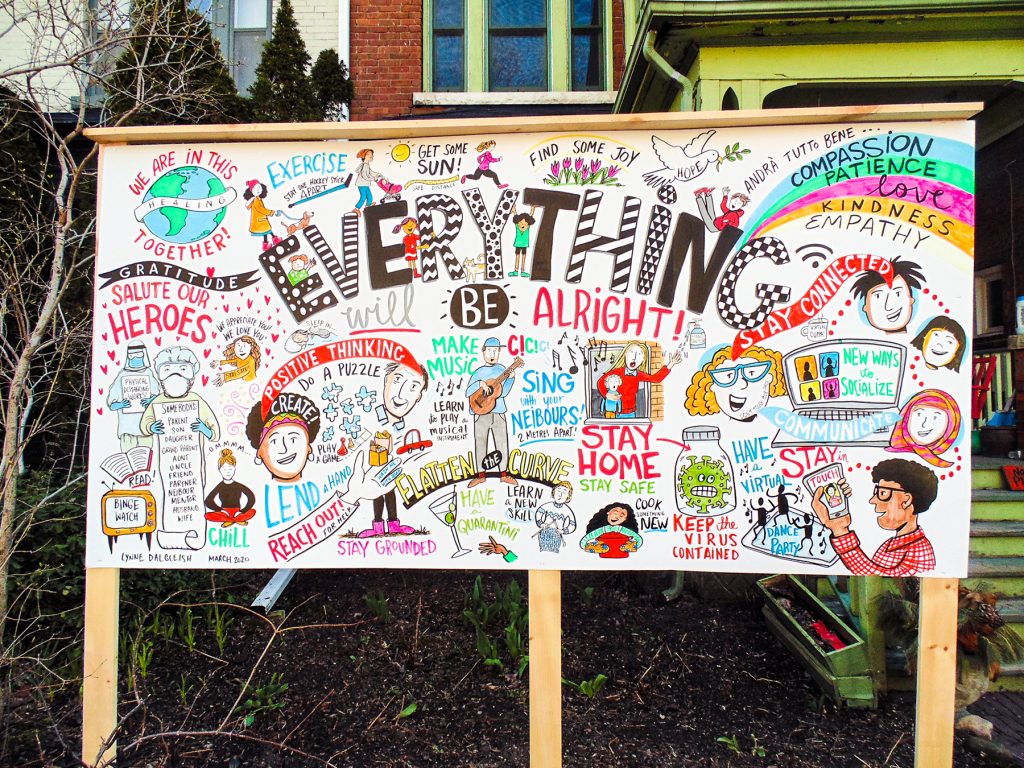 WE ARE IN THIS
HEALING
TOGETHER!
EXERCISE
STAY ONE HOCKEY STICK
APART
GET SOME
SUN!
SAFE DISTANCE
FIND SOME JOY
HOPE
ANDRÀ TUTTO BENE ...
COMPASSION
PATIENCE
love
KINDNESS
EMPATHY
EVERYTHING
will
BE
ALRIGHT!
GRATITUDE
SALUTE OUR
HEROES
WE APPRECIATE YOU!
WE LOVE YOU!
PHYSICAL
DISTANCING
WORKS
SOMEBODY'S
PARENT
SON
DAUGHTER
GRAND PARENT
AUNT
UNCLE
FRIEND
PARTNER
NEIBOUR
MENTOR
HUSBAND
WIFE
READ
BINGE
WATCH
CHILL
LYNNE DALGLEISH MARCH 2020
SLEEP IN
POSITIVE THINKING
DO A PUZZLE
CREATE!
PLAY
A GAME
LEND A HAND
REACH OUT!
FOR HELP
STAY GROUNDED
MAKE
MUSIC
LEARN
to PLAY
a
MUSICAL
INSTRUMENT
SING
with YOUR
NEIBOURS!
2 METRES APART!
FLATTEN the CURVE
HAVE
a
QUARANTINI
LEARN
A NEW
SKILL
COOK
SOMETHING
NEW
STAY
HOME
STAY SAFE
KEEP the
VIRUS
CONTAINED
STAY CONNECTED
NEW WAYS
to
SOCIALIZE
COMMUNICATE
HAVE
a
VIRTUAL
DANCE
PARTY
STAY in
TOUCH!